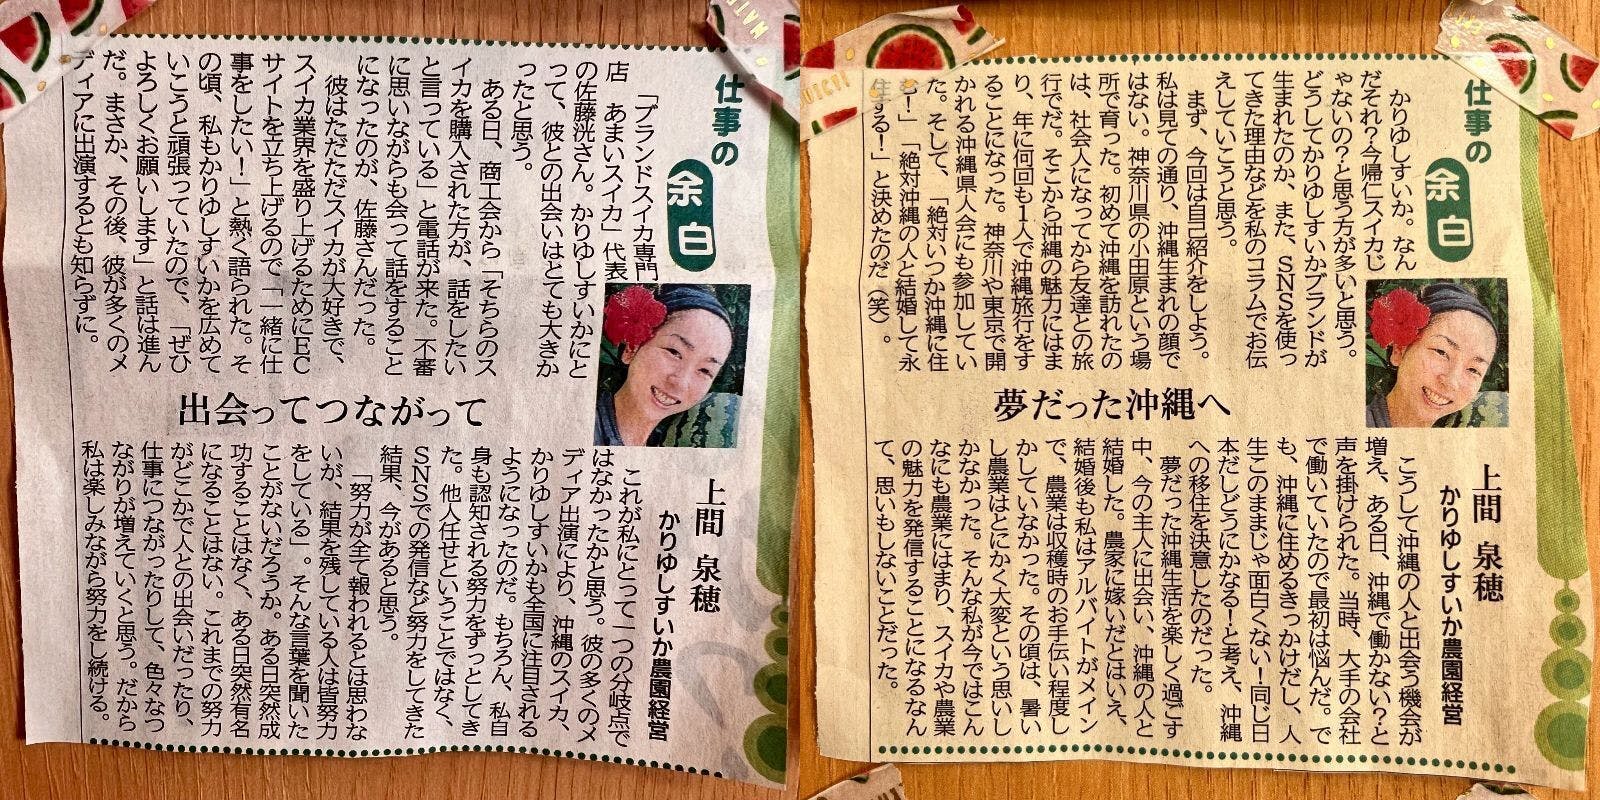 仕事の
余白
「ブランドスイカ専門
店　あまいスイカ」代表
の佐藤洸さん。かりゆしすいかにと
って、彼との出会いはとても大きか
ったと思う。
ある日、商工会から「そちらのス
イカを購入された方が、話をしたい
と言っている」と電話が来た。不審
に思いながらも会って話をすること
になったのが、佐藤さんだった。
彼はただただスイカが大好きで、
スイカ業界を盛り上げるためにEC
サイトを立ち上げるので「一緒に仕
事をしたい！」と熱く語られた。そ
の頃、私もかりゆしすいかを広めて
いこうと頑張っていたので、「ぜひ
よろしくお願いします」と話は進ん
だ。まさか、その後、彼が多くのメ
ディアに出演するとも知らずに。
出会ってつながって
上間　泉穂
かりゆしすいか農園経営
これが私にとって一つの分岐点で
はなかったかと思う。彼の多くのメ
ディア出演により、沖縄のスイカ、
かりゆしすいかも全国に注目される
ようになったのだ。もちろん、私自
身も認知される努力をずっとしてき
た。他人任せということではなく、
SNSでの発信など努力をしてきた
結果、今があると思う。
「努力が全て報われるとは思わな
いが、結果を残している人は皆努力
をしている」。そんな言葉を聞いた
ことがないだろうか。ある日突然成
功することはなく、ある日突然有名
になることはない。これまでの努力
がどこかで人との出会いだったり、
仕事につながったりして、色々なつ
ながりが増えていくと思う。だから
私は楽しみながら努力をし続ける。
仕事の
余白
かりゆしすいか。なん
だそれ？今帰仁スイカじ
ゃないの？と思う方が多いと思う。
どうしてかりゆしすいかブランドが
生まれたのか、また、SNSを使っ
てきた理由などを私のコラムでお伝
えしていこうと思う。
まず、今回は自己紹介をしよう。
私は見ての通り、沖縄生まれの顔で
はない。神奈川県の小田原という場
所で育った。初めて沖縄を訪れたの
は、社会人になってから友達との旅
行でだ。そこから沖縄の魅力にはま
り、年に何回も1人で沖縄旅行をす
ることになった。神奈川や東京で開
かれる沖縄県人会にも参加してい
た。そして、「絶対いつか沖縄に住
む！」「絶対沖縄の人と結婚して永
住する！」と決めたのだ（笑）。
夢だった沖縄へ
上間　泉穂
かりゆしすいか農園経営
こうして沖縄の人と出会う機会が
増え、ある日、沖縄で働かない？と
声を掛けられた。当時、大手の会社
で働いていたので最初は悩んだ。で
も、沖縄に住めるきっかけだし、人
生このままじゃ面白くない！同じ日
本だしどうにかなる！と考え、沖縄
への移住を決意したのだった。
夢だった沖縄生活を楽しく過ごす
中、今の主人に出会い、沖縄の人と
結婚した。農家に嫁いだとはいえ、
結婚後も私はアルバイトがメイン
で、農業は収穫時のお手伝い程度し
かしていなかった。その頃は、暑い
し農業はとにかく大変という思いし
かなかった。そんな私が今ではこん
なにも農業にはまり、スイカや農業
の魅力を発信することになるなん
て、思いもしないことだった。